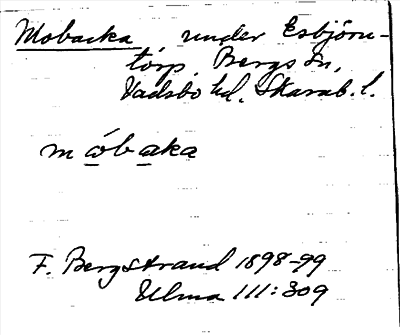 Mobacka, under Esbjörn-
torp, Bergs sn,
Vadsbo hd. Skarab. l.
m åb aka
F. Bergstrand 1898-99
Ulma 111:309